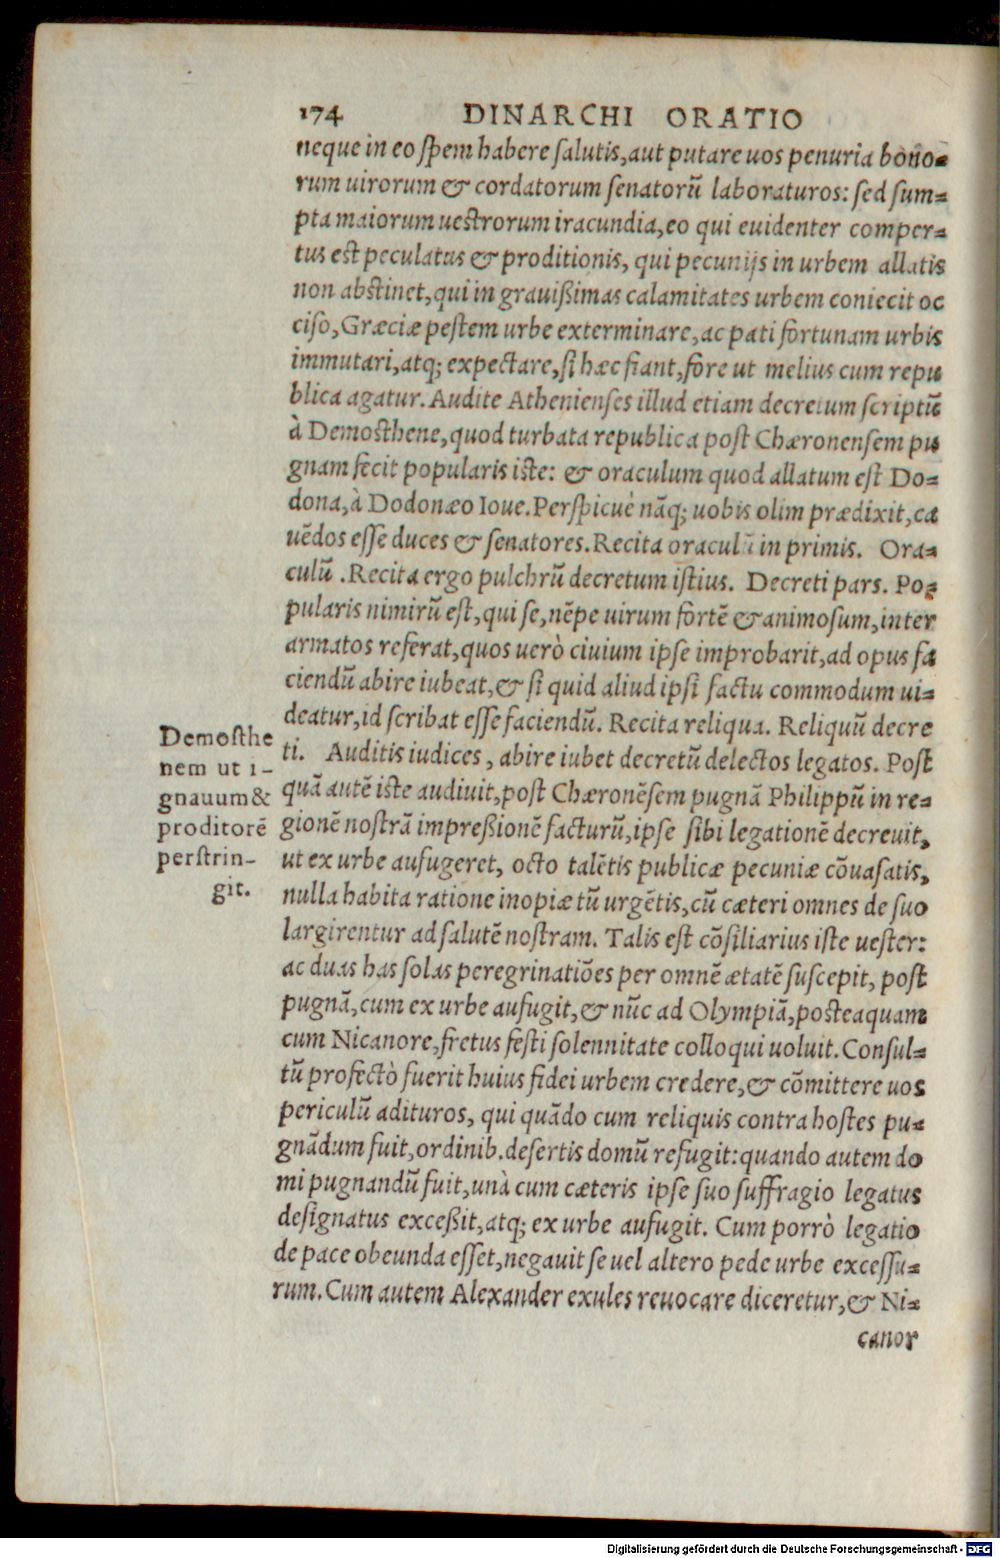 174 DINARCHI ORATIO
neque in eo ſpem habere ſalutis, aut putare uos penuria bono-
rum uirorum & cordatorum ſenatorũ laboraturos: ſed ſum-
pta maiorum ueſtrorum iracundia, eo qui euidenter comper-
tus eſt peculatus & proditionis, qui pecunijs in urbem allatis
non abſtinet, qui in grauißimas calamitates urbem coniecit oc
ciſo, Græciæ peſtem urbe exterminare, ac pati fortunam urbis
immutari, atq; expectare, ſi hæc fiant, fore ut melius cum repu
blica agatur. Audite Athenienſes illud etiam decretum ſcriptũ
à Demoſthene, quod turbata republica poſt Chæronenſem pu
gnam fecit popularis iſte: & oraculum quod allatum eſt Do-
dona, à Dodonæo Ioue. Perſpicuè nãq; uobis olim prædixit, ca
uẽdos eſſe duces & ſenatores. Recita oraculũ in primis. Ora-
culũ . Recita ergo pulchrũ decretum iſtius. Decreti pars. Po-
pularis nimirũ eſt, qui ſe, nẽpe uirum fortẽ & animoſum, inter
armatos referat, quos uerò ciuium ipſe improbarit, ad opus fa
ciendũ abire iubeat, & ſi quid aliud ipſi factu commodum ui-
deatur, id ſcribat eſſe faciendũ. Recita reliqua. Reliquũ decre
ti. Auditis iudices, abire iubet decretũ delectos legatos. Poſt
quã autẽ iſte audiuit, poſt Chæronẽſem pugnã Philippũ in re-
gionẽ noſtrã impreßionẽ facturũ, ipſe ſibi legationẽ decreuit,
ut ex urbe aufugeret, octo talẽtis publicæ pecuniæ cõuaſatis,
nulla habita ratione inopiæ tũ urgẽtis, cũ cæteri omnes de ſuo
largirentur ad ſalutẽ noſtram. Talis eſt cõſiliarius iſte ueſter:
ac duas has ſolas peregrinatiões per omnẽ ætatẽ ſuſcepit, poſt
pugnã, cum ex urbe aufugit, & nũc ad Olympiã, poſteaquam
cum Nicanore, fretus feſti ſolennitate colloqui uoluit. Conſul-
tũ profectò fuerit huius fidei urbem credere, & cõmittere uos
periculũ adituros, qui quãdo cum reliquis contra hoſtes pu-
gnãdum fuit, ordinib. deſertis domũ refugit: quando autem do
mi pugnandũ fuit, unà cum cæteris ipſe ſuo ſuffragio legatus
deſignatus exceßit, atq; ex urbe aufugit. Cum porrò legatio
de pace obeunda eſſet, negauit ſe uel altero pede urbe exceſſu-
rum. Cum autem Alexander exules reuocare diceretur, & Ni-
canor
Demoſthe
nem ut i-
gnauum &
proditorẽ
perſtrin-
git.
Digitalisierung gefördert durch die Deutsche Forschungsgemeinschaft - DFG